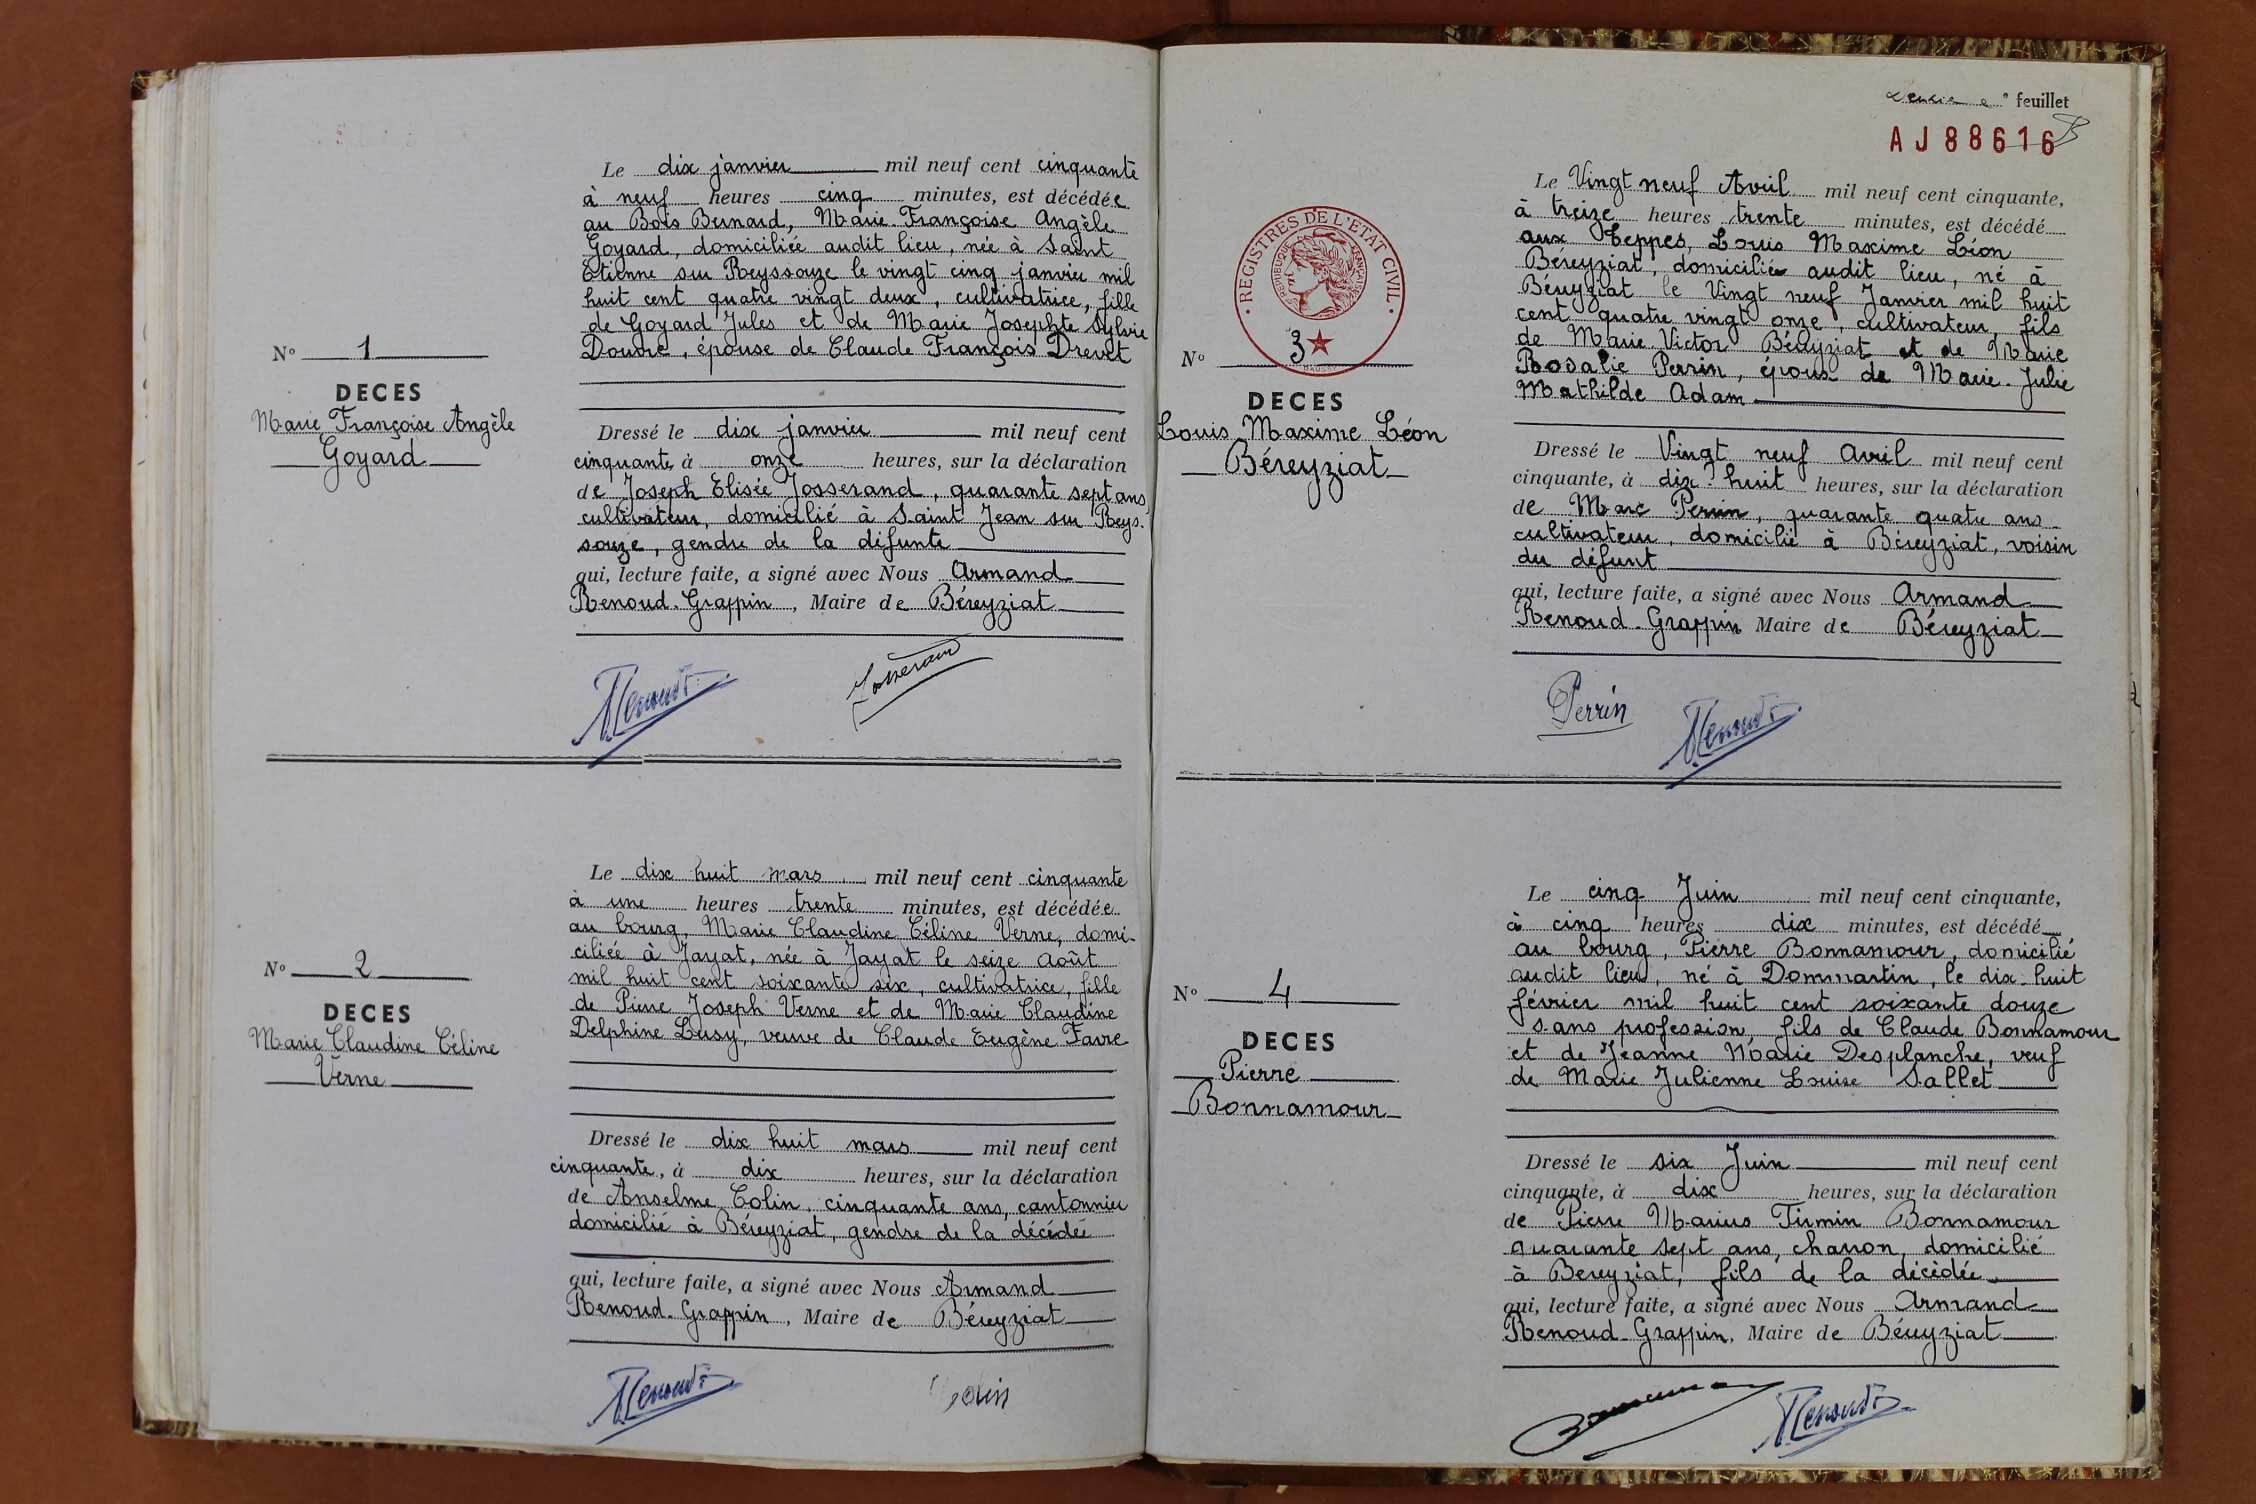 Le dix janvier mil neuf cent cinquante
à neuf heures cinq minutes, est décédée
au Bois Bernard, Marie Françoise Angèle
Goyard, domiciliée audit lieu, née à Saint
Etienne sur Reyssouze le vingt cinq janvier mil
huit cent quatre vingt deux, cultivatrice, fille
de Goyard Jules et de Marie Josephte Sylvie
Doudre, épouse de Claude François Drevet
N° 1
DECES
Marie Françoise Angèle
Goyard
Dressé le dix janvier mil neuf cent
cinquante à onze heures, sur la déclaration
de Joseph Elisée Josserand, quarante sept ans,
cultivateur, domicilié à Saint Jean sur Reys-
souze, gendre de la défunte
qui, lecture faite, a signé avec Nous Armand
Renoud-Grappin, Maire de Béreyziat
Renoud
Josserand
Le dix huit mars mil neuf cent cinquante
à une heures trente minutes, est décédée
au bourg, Marie Claudine Céline Verne, domi-
ciliée à Jayat, née à Jayat le seize Août
mil huit cent soixante six, cultivatrice, fille
de Pierre Joseph Verne et de Marie Claudine
Delphine Lusy, veuve de Claude Eugène Favre
N° 2
DECES
Marie Claudine Céline
Verne
Dressé le dix huit mars mil neuf cent
cinquante, à dix heures, sur la déclaration
de Anselme Colin, cinquante ans, cantonnier
domicilié à Béreyziat, gendre de la décédée
qui, lecture faite, a signé avec Nous Armand
Renoud-Grappin, Maire de Béreyziat
Renoud
Colin
feuillet
AJ88616
Le Vingt neuf Avril mil neuf cent cinquante,
à treize heures trente minutes, est décédé
aux Teppes, Louis Maxime Léon
Béreyziat, domicilié audit lieu, né à
Béreyziat le Vingt neuf Janvier mil huit
cent quatre vingt onze, cultivateur, fils
de Marie Victor Béreyziat et de Marie
Rosalie Perrin, époux de Marie-Julie
Mathilde Adam
REGISTRES DE L'ETAT CIVIL
REPUBLIQUE FRANÇAISE
N° 3
DECES
Louis Maxime Léon
Béreyziat
Dressé le Vingt neuf Avril mil neuf cent
cinquante, à dix-huit heures, sur la déclaration
de Marc Perrin, quarante quatre ans
cultivateur, domicilié à Béreyziat, voisin
du défunt
qui, lecture faite, a signé avec Nous Armand
Renoud-Grappin Maire de Béreyziat
Perrin
Renoud
Le cinq Juin mil neuf cent cinquante,
à cinq heures dix minutes, est décédé
au bourg, Pierre Bonnamour, domicilié
audit lieu, né à Dommartin, le dix-huit
février mil huit cent soixante douze
sans profession, fils de Claude Bonnamour
et de Jeanne Marie Desplanche, veuf
de Marie Julienne Louise Sallet
N° 4
DECES
Pierre
Bonnamour
Dressé le six Juin mil neuf cent
cinquante, à dix heures, sur la déclaration
de Pierre Marius Firmin Bonnamour
quarante sept ans, charron, domicilié
à Bereyziat, fils de la décédée
qui, lecture faite, a signé avec Nous Armand
Renoud-Grappin, Maire de Béreyziat
Renoud